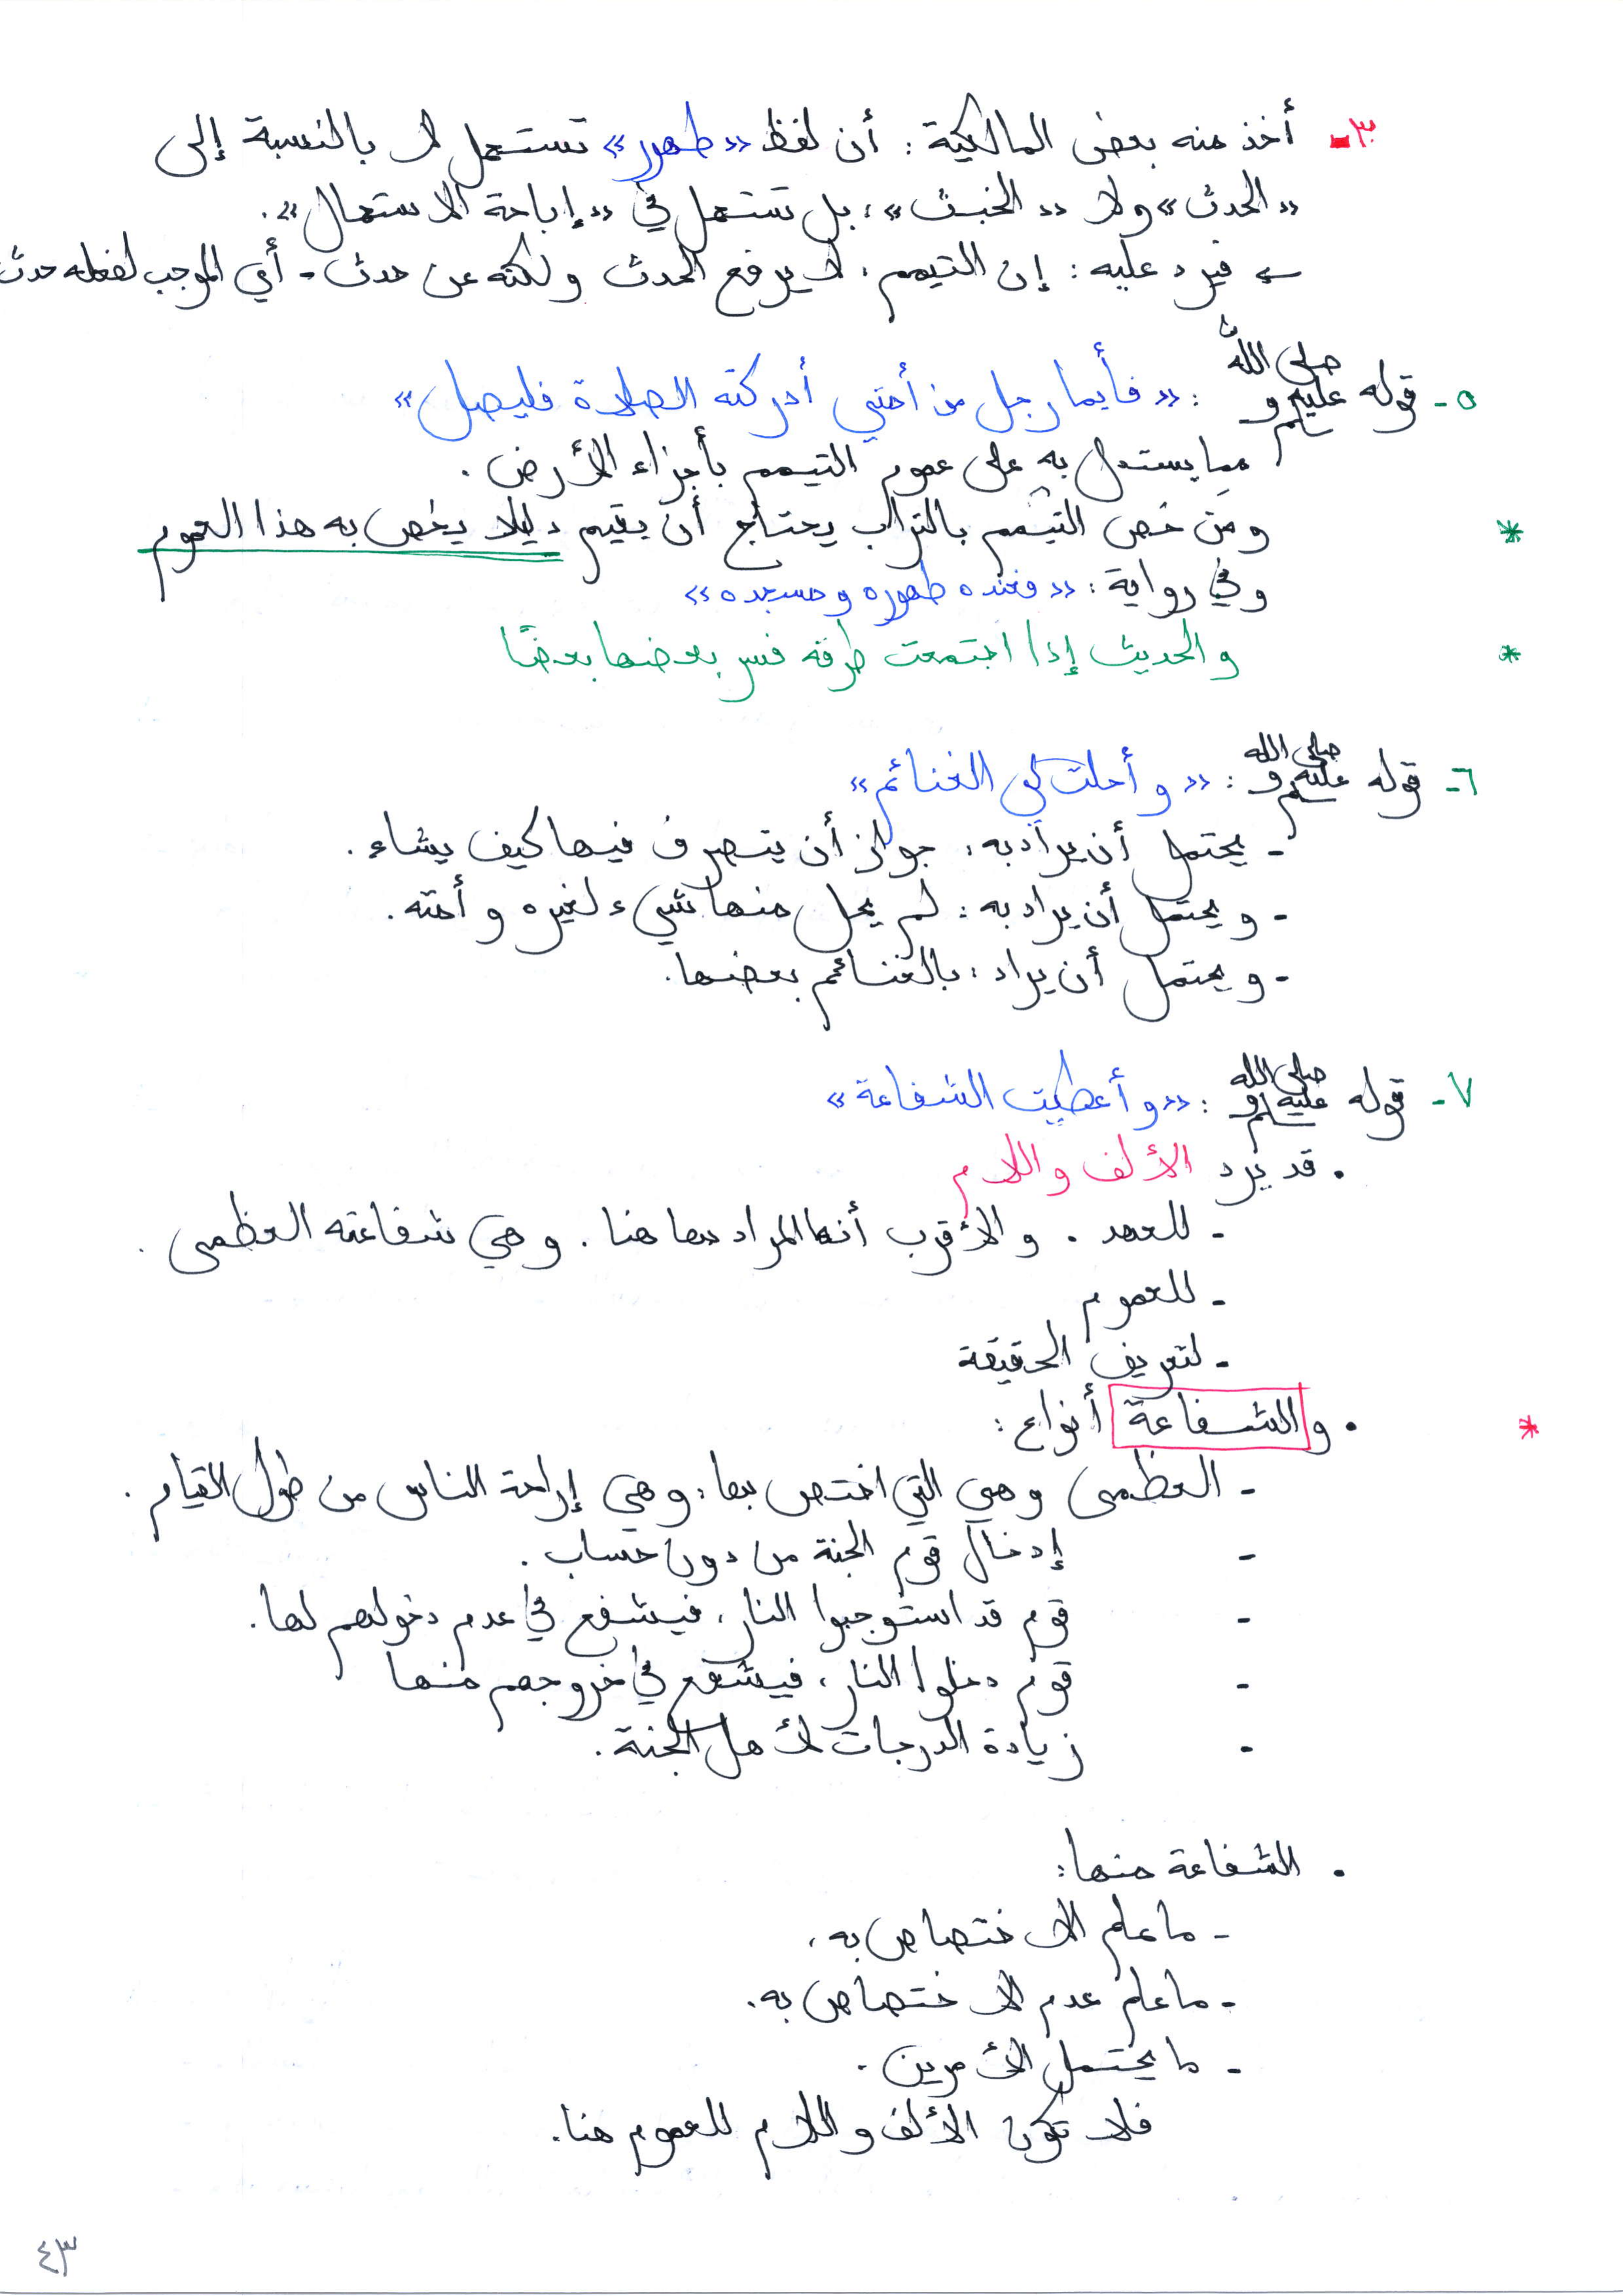 ٣- أخذ منه بعض المالكية : أن لفظ «طهور» تستعمل لا بالنسبة إلى
«الحدث» ولا «الخبث»، بل تستعمل في «إباحة الاستعمال».
فيرد عليه : إن التيمم، لا يرفع الحدث ولكنه عن حدث - أي الموجب لفعله حدث
٥- قوله صلى الله عليه وسلم : «فأيما رجل من أمتي أدركته الصلاة فليصل»
مما يستدل به على عموم التيمم بأجزاء الأرض .
* ومن خص التيمم بالتراب يحتاج أن يقيم دليلا يخص به هذا العموم
وفي رواية : «فعنده طهوره ومسجده»
* والحديث إذا اجتمعت طرقه فسر بعضها بعضًا
٦- قوله صلى الله عليه وسلم : «وأحلت لي الغنائم»
- يحتمل أن يراد به : جواز أن يتصرف فيها كيف يشاء .
- ويحتمل أن يراد به : لم يحل منها شيء لغيره وأمته .
- ويحتمل أن يراد : بالغنائم بعضها .
٧- قوله صلى الله عليه وسلم : «وأعطيت الشفاعة»
. قد يرد الألف واللام
- للعهد . والأقرب أنها المراد هاهنا . وهي شفاعته العظمى .
- للعموم
- لتعريف الحقيقة
* . والشفاعة أنواع :
- العظمى وهي التي اختص بها، وهي إراحة الناس من طول القيام .
- إدخال قوم الجنة من دون حساب .
- قوم قد استوجبوا النار، فيشفع في عدم دخولهم لها .
- قوم دخلوا النار، فيشفع في خروجهم منها
- زيادة الدرجات لأهل الجنة .
. الشفاعة منها :
- ما علم الاختصاص به .
- ما علم عدم الاختصاص به .
- ما يحتمل الأمرين .
فلا تكون الألف واللام للعموم هنا .
٤٣